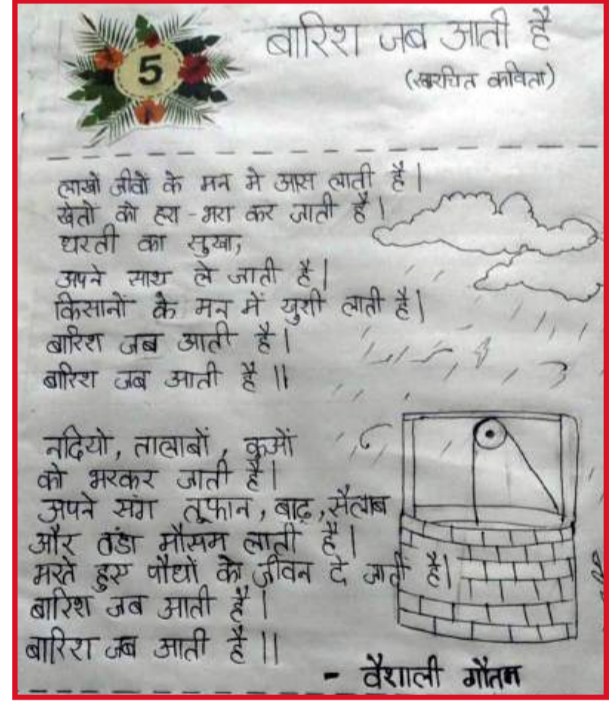 5
बारिश जब आती है
(स्वरचित कविता)
लाखों जीवों के मन मे आस लाती है।
खेतो को हरा-भरा कर जाती है।
धरती का सुखा,
अपने साथ ले जाती है।
किसानों के मन में खुशी लाती है।
बारिश जब आती है।
बारिश जब आती है॥
नदियो, तालाबों, कुओं
को भरकर जाती है।
अपने संग तूफान, बाढ़, सैलाब
और ठंडा मौसम लाती है।
मरते हुए पौधों को जीवन दे जाती है।
बारिश जब आती है।
बारिश जब आती है॥
- वैशाली गौतम